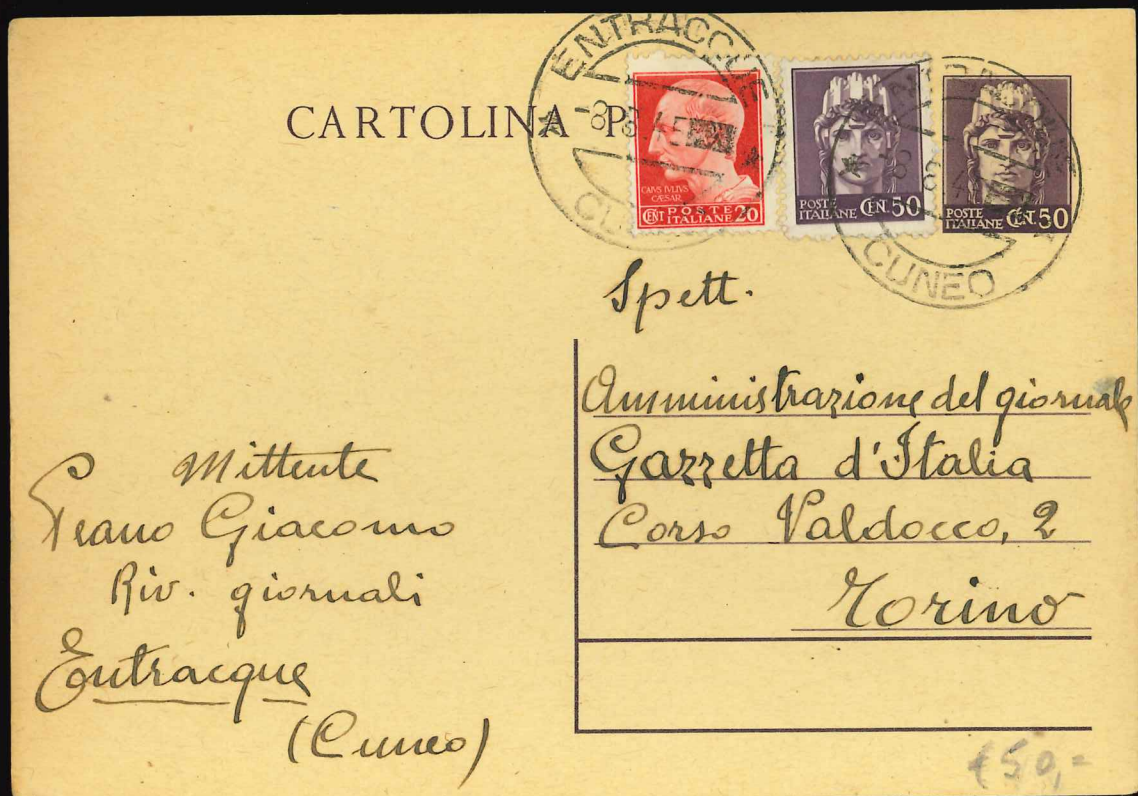 CARTOLINA P
ENTRACQUE
-8.8.45
CUNEO
CAIVS IVLIVS
CAESAR
CENT POSTE ITALIANE 20
POSTE ITALIANE CEN. 50
POSTE ITALIANE CEN. 50
CUNEO
Spett.
Amministrazione del giornale
Gazzetta d'Italia
Corso Valdocco, 2
Torino
Mittente
Peano Giacomo
Riv. giornali
Entracque
(Cuneo)
€50,=